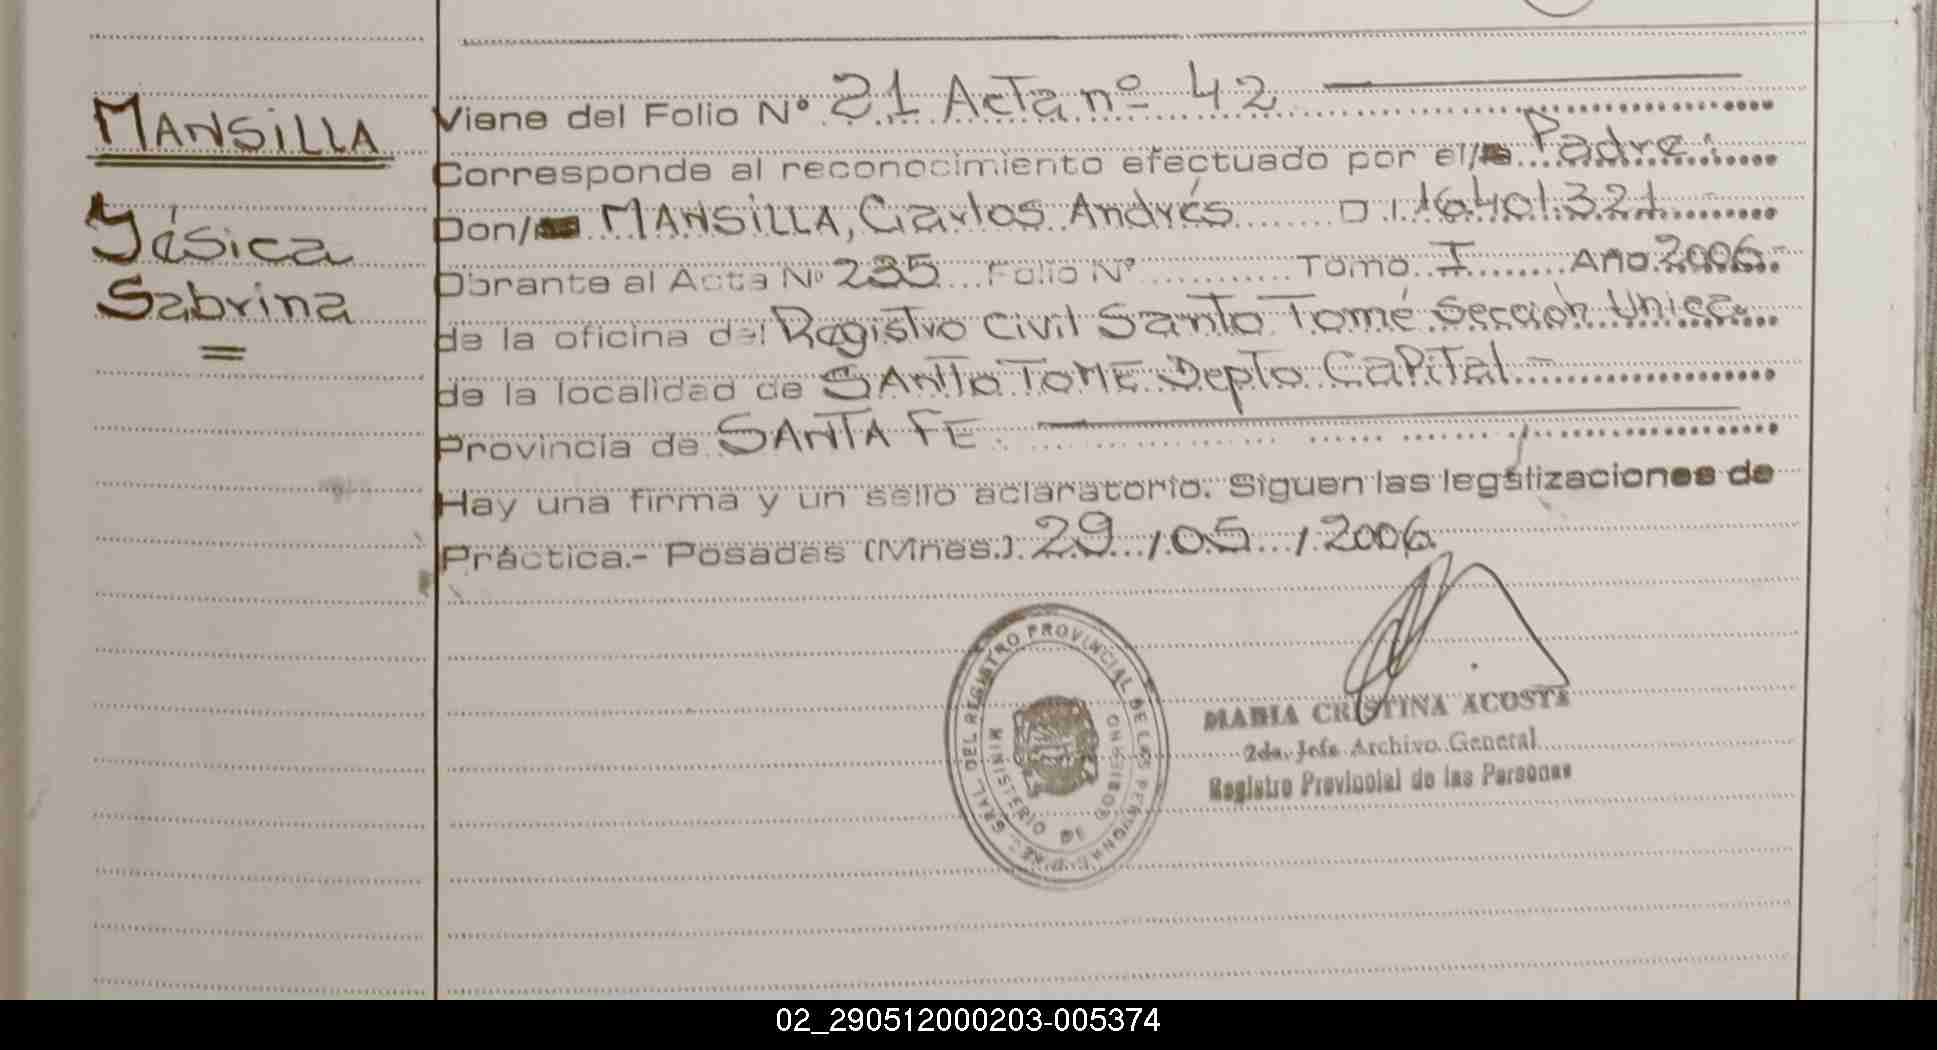 MANSILLA
Yésica
Sabrina
Viene del Folio Nº 21 Acta nº 42
Corresponde al reconocimiento efectuado por el/ Padre:
Don/ MANSILLA, Carlos Andrés D.I. 16.401.321
Obrante al Acta Nº 235 Folio Nº Tomo I Año 2006.-
de la oficina del Registro Civil Santo Tomé Sección Unica
de la localidad de SANTO TOME Depto Capital -
Provincia de SANTA FE
Hay una firma y un sello aclaratorio. Siguen las legalizaciones de
Práctica.- Posadas (Mnes.) 29 / 05 / 2006
DIREC. GRAL. DEL REGISTRO PROVINCIAL DE LAS PERSONAS
MINISTERIO DE GOBIERNO
MARIA CRISTINA ACOSTA
2da. Jefe Archivo General
Registro Provincial de las Personas
02_290512000203-005374